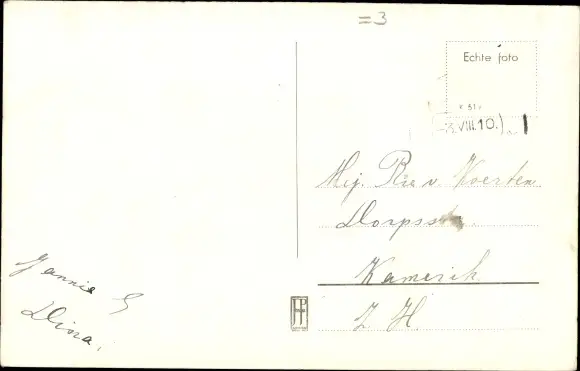 =3
Echte foto
VIII.10.)
Mej. Rie v. Koerten
Dorpsstr.
Kamerik
Z. H.
Jannie &
Dina.